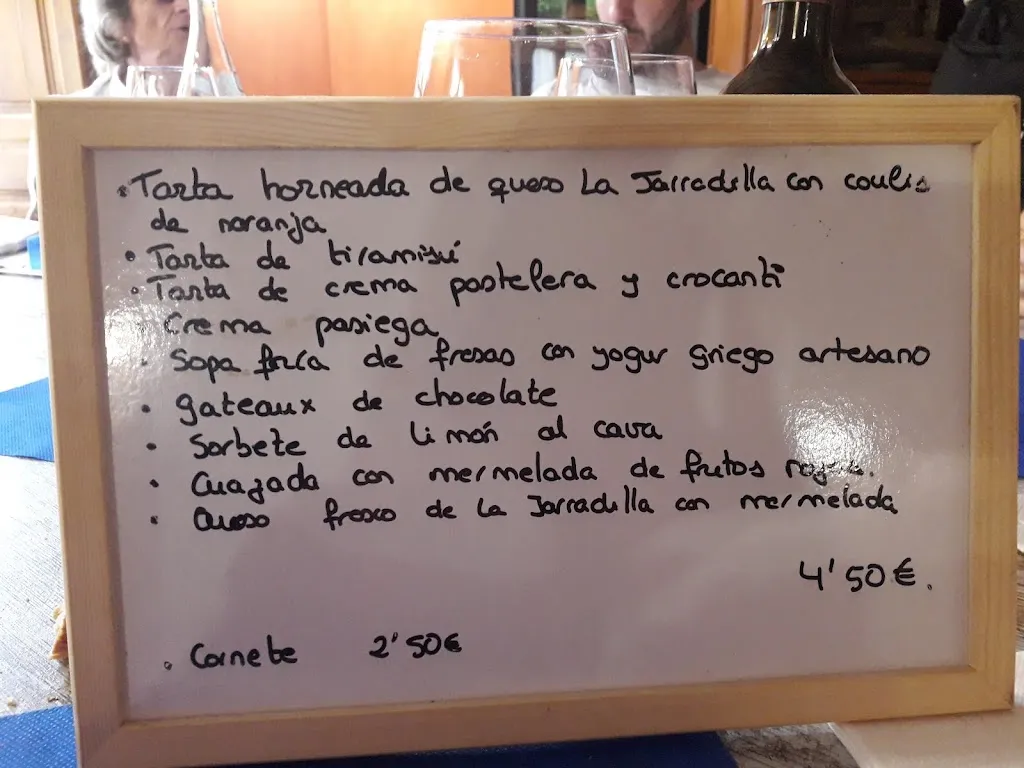 • Tarta horneada de queso La Jarradilla con coulis
de naranja
• Tarta de tiramisú
• Tarta de crema pastelera y crocanti
• Crema pasiega
• Sopa fría de fresas con yogur griego artesano
• gateaux de chocolate
• Sorbete de limón al cava
• Cuajada con mermelada de frutos rojos.
• Queso fresco de La Jarradilla con mermelada
4'50€.
• Cornete 2'50€